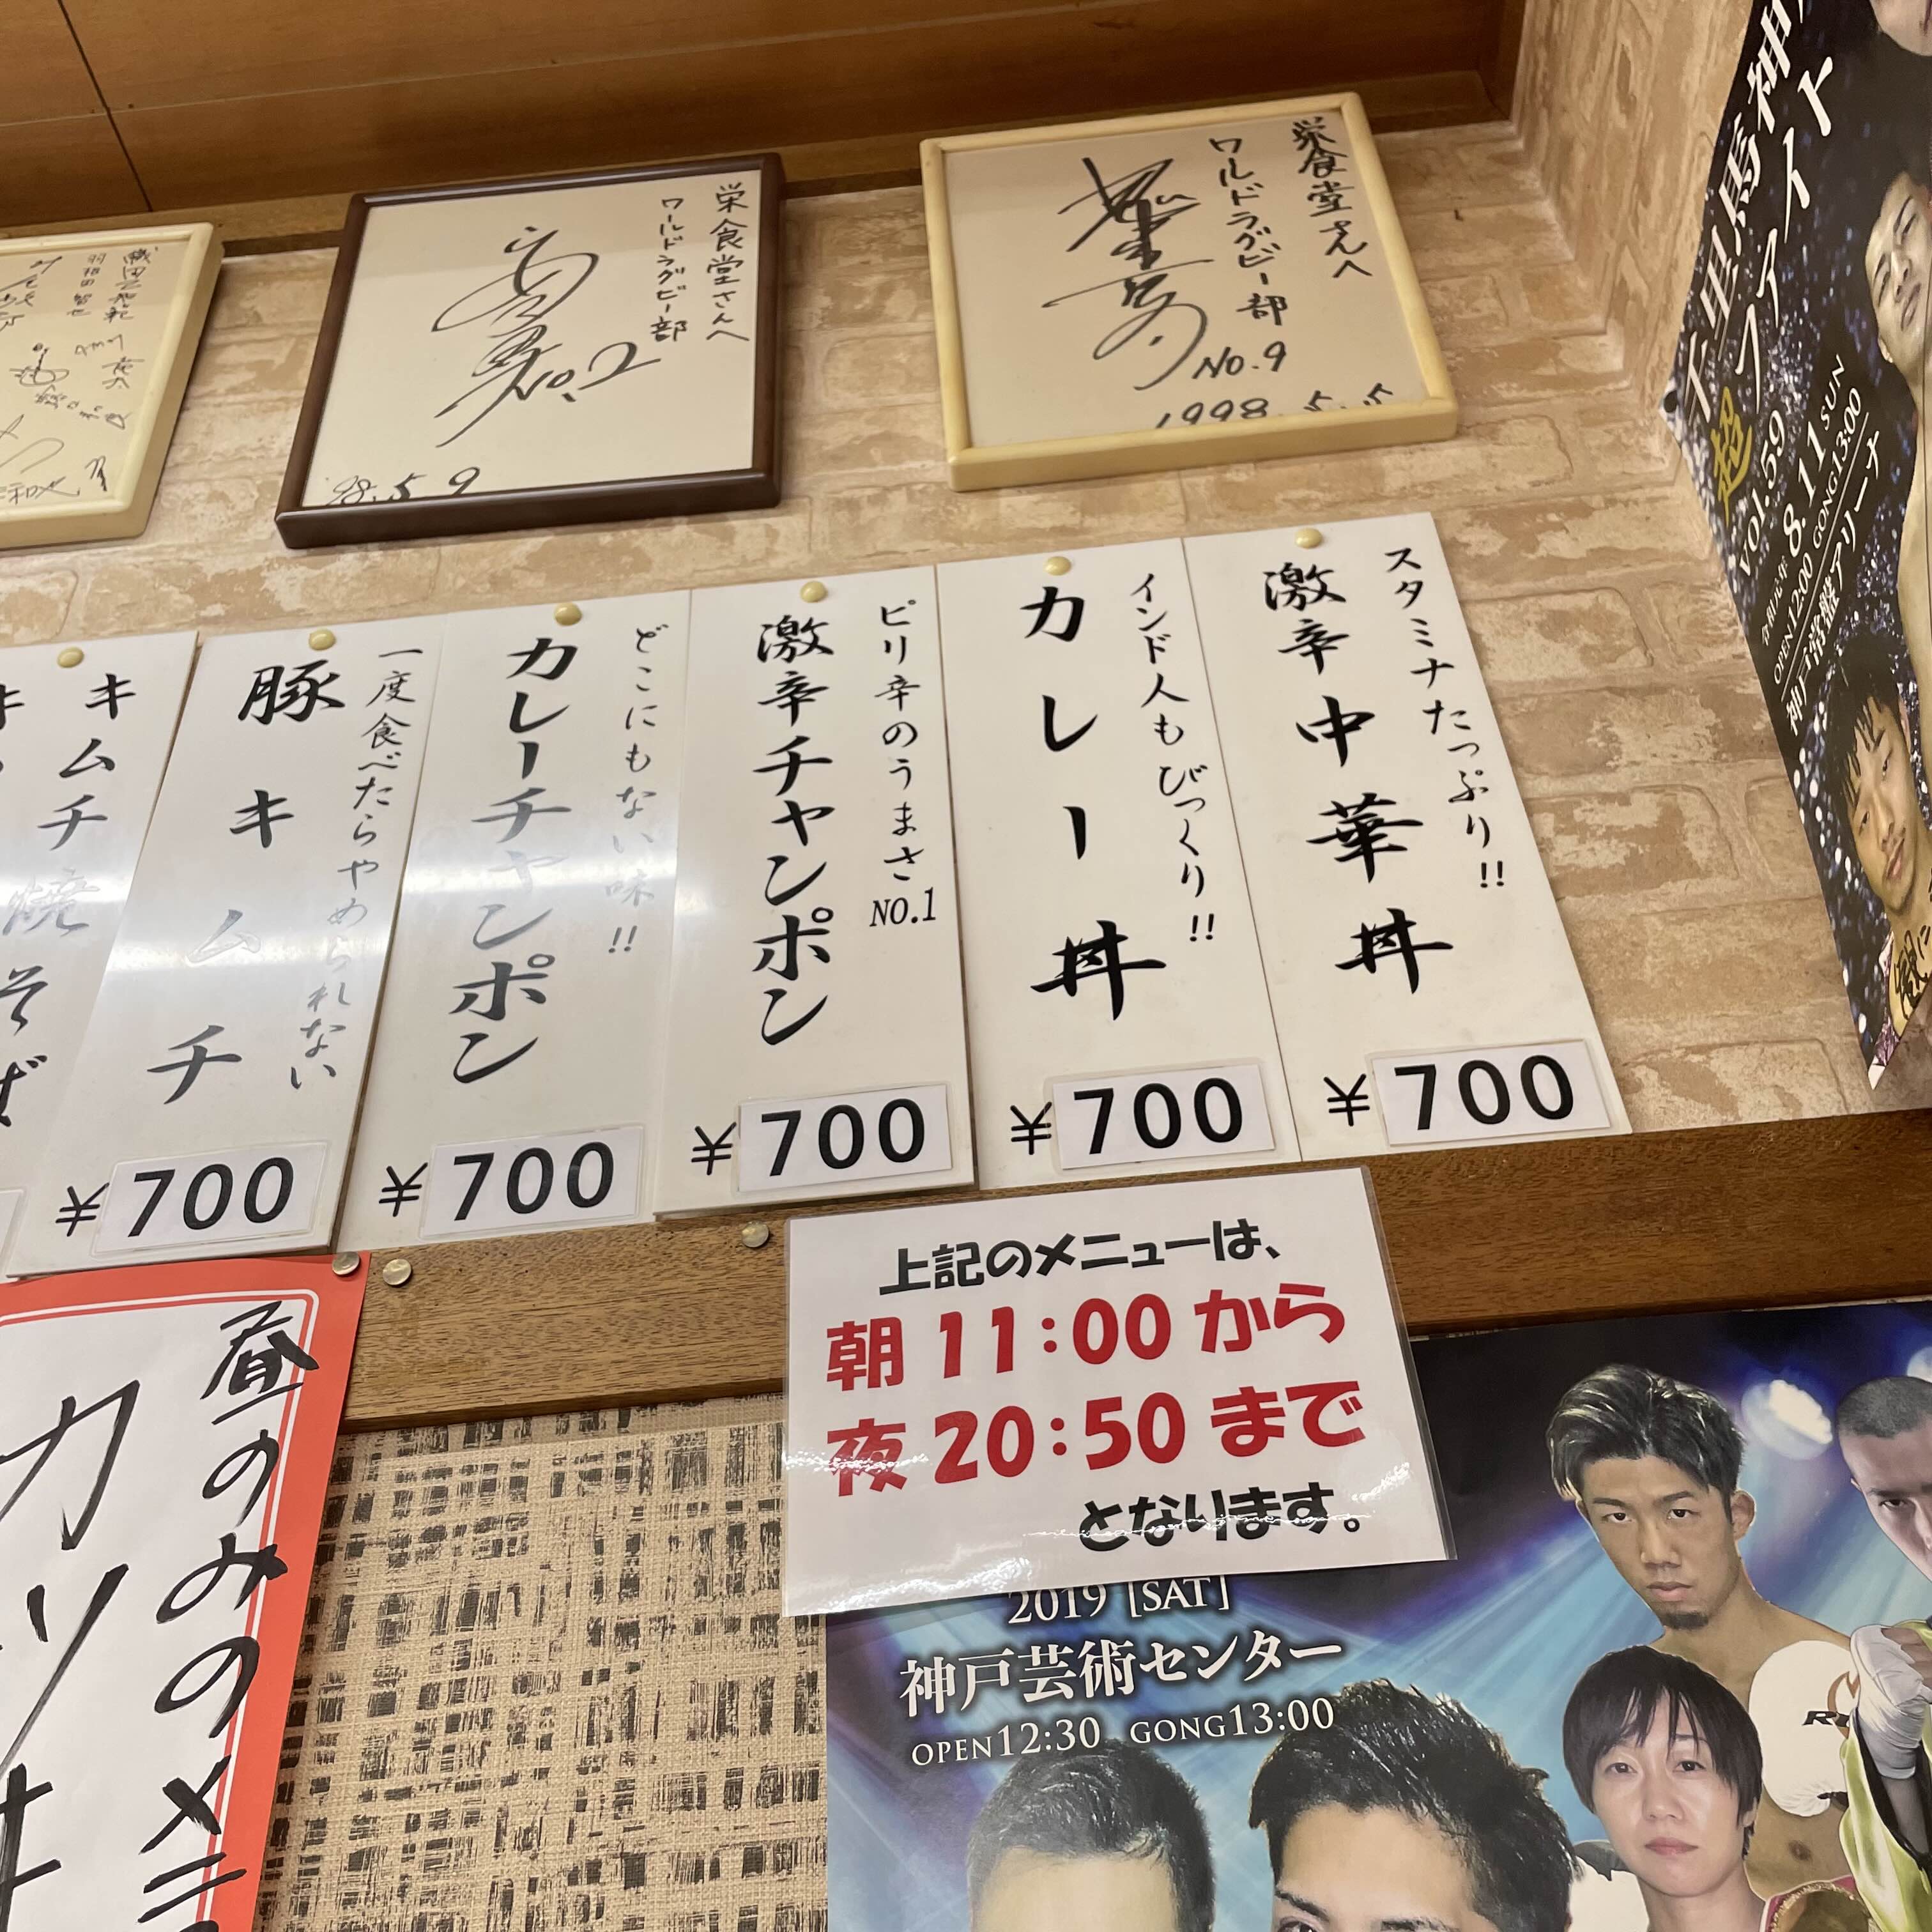 栄食堂さんへ
ワールドラグビー部
No.9
1998.5.5
栄食堂さんへ
ワールドラグビー部
No.2
'98.5.9
スタミナたっぷり!!
激辛中華丼
¥700
インド人もびっくり!!
カレー丼
¥700
ピリ辛のうまさNO.1
激辛チャンポン
¥700
どこにもない味!!
カレーチャンポン
¥700
一度食べたらやめられない
豚キムチ
¥700
キムチ焼そば
上記のメニューは、
朝11:00から
夜20:50まで
となります。
昼のみのメニ
カツ
千里馬神
超ファイト
vol.59
令和元年
8.11SUN
OPEN12:00 GONG13:00
神戸常盤アリーナ
2019 [SAT]
神戸芸術センター
OPEN12:30 GONG13:00